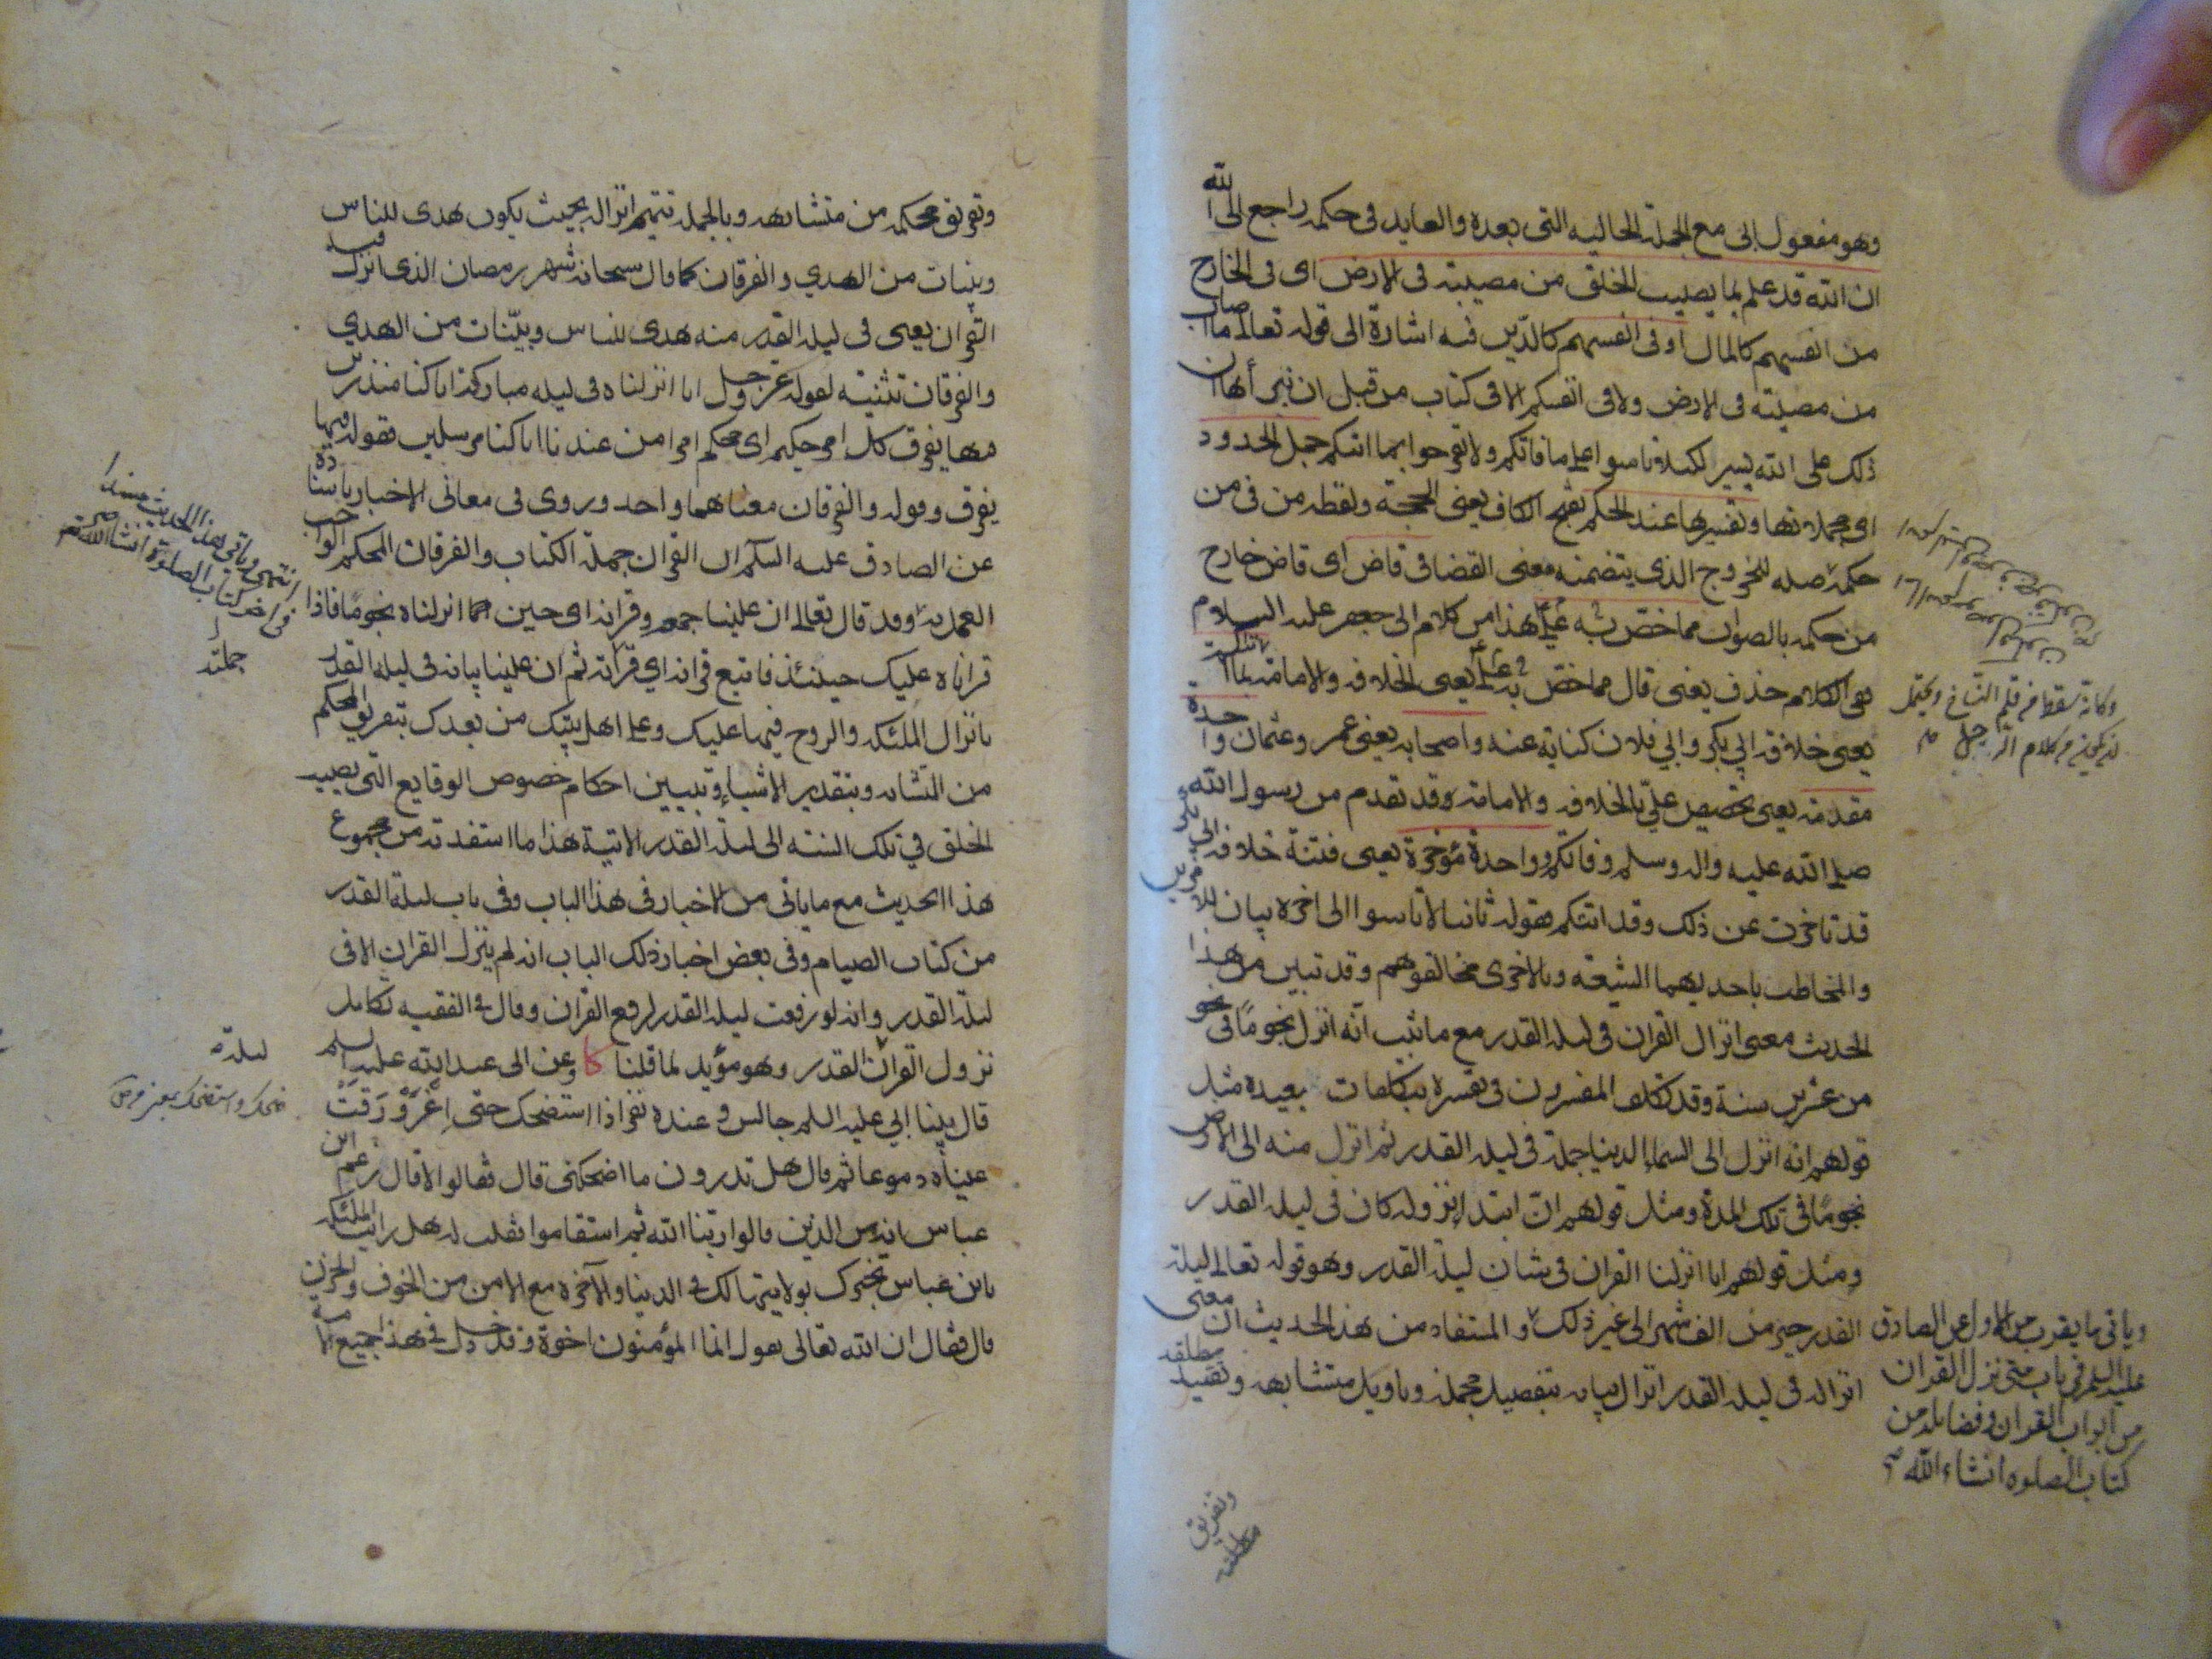 وهو مفعول ابى مع الجملة الحالية التى بعده والعايد فى حكمه راجع الى الله
ان الله قد علم بما يصيب الخلق من مصيبة فى الارض اى فى الخارج
من انفسهم كالمال او فى انفسهم كالدين فيه اشارة الى قوله تعالى ما اصاب
من مصيبة فى الارض ولا فى انفسكم الا فى كتاب من قبل ان نبرأها ان
ذلك على الله يسير لكيلا تاسوا على ما فاتكم ولا تفرحوا بما اتيكم جمل الحدود
اى مجملاتها وتفسيرها عند الحكم بفتح الكاف يعنى الحجة ولفظه من فى من
حكمه صله للخروج الذى يتضمنه معنى القضا فى قاض اى قاض خارج
من حكمه بالصواب مما خص به على هذا من كلام ابى جعفر عليه السلام
فى الكلام حذف يعنى قال مما خص به على يعنى الخلافه والامامة
يعنى خلافة ابي بكر وابي فلان كناية عنه واصحابه يعنى عمر وعثمان واحدة
مقدمة يعنى تخصيص علي بالخلافه والامامة وقد تقدم من رسول الله
صلى الله عليه واله وسلم وفاتكم وواحدة مؤخرة يعنى فتنة خلافه ابي بكر
قد تاخرت عن ذلك وقد اتتكم فقوله ثانيا لا تاسوا الى اخره بيان للامرين
والمخاطب باحديهما الشيعة وبالاخرى مخالفوهم وقد تبين من هذا
الحديث معنى انزال القران فى ليلة القدر مع ما ثبت انه انزل نجوما فى نحو
من عشرين سنة وقد تكلف المفسرون فى تفسيره بتكلفات بعيدة مثل
قولهم انه انزل الى السماء الدنيا جملة فى ليلة القدر ثم انزل منه الى الارض
نجوما فى تلك المدة ومثل قولهم ان ابتدا نزوله كان فى ليلة القدر
ومثل قولهم انا انزلنا القران فى شان ليلة القدر وهو قوله تعالى ليلة
القدر خير من الف شهر الى غير ذلك والمستفاد من هذا الحديث ان معنى
انزاله فى ليلة القدر انزال بيانه بتفصيل مجمله وتاويل متشابهه وتقييد مطلقه
وتفريق
وكانه سقط من قلم النساخ ويحتمل
من كلام الرجل
وياتى ما يقرب من الاول عن الصادق
عليه السلم فى باب متى نزل القران
من ابواب القران وفضايله من
كتاب الصلوه انشاء الله
وتفريق محكمه من متشابهه وبالجملة تتميم انزاله بحيث يكون هدى للناس
وبينات من الهدي والفرقان كما قال سبحانه شهر رمضان الذى انزل فيه
القران يعنى فى ليلة القدر منه هدى للناس وبينات من الهدي
والفرقان تثنية لقوله عز وجل انا انزلناه فى ليلة مباركة انا كنا منذرين
فيها يفرق كل امر حكيم اى محكم امرا من عندنا انا كنا مرسلين فقوله فيها
يفرق وقوله والفرقان معناهما واحد وروى فى معانى الاخبار باسناده
عن الصادق عليه السلم ان القران جملة الكتاب والفرقان المحكم الواجب
العمل به وقد قال تعالى ان علينا جمعه وقرانه اى حين انزلناه نجوما فاذا
قراناه عليك حينئذ فاتبع قرانه اي قرأته ثم ان علينا بيانه فى ليلة القدر
بانزال الملئكة والروح فيها عليك وعلى اهل بيتك من بعدك بتفريق المحكم
من المتشابه وبتقدير الاشياء وتبيين احكام خصوص الوقايع التى يصيب
الخلق في تلك السنة الى ليلة القدر الاتية هذا ما استفدته من مجموع
هذا الحديث مع ما ياتى من الاخبار فى هذا الباب وفى باب ليلة القدر
من كتاب الصيام وفى بعض اخبار ذلك الباب انه لم ينزل القران الا فى
ليلة القدر وانه لو رفعت ليلة القدر لرفع القران وقال في الفقيه تكامل
نزول القران القدر وهو مؤيد لما قلنا كا وعن ابى عبد الله عليه السلم
قال بينا ابي عليه السلم جالس وعنده نفر اذا استضحك حتى اغرورقت
عيناه دموعا ثم قال هل تدرون ما اضحكنى قال فقالوا لا قال زعم ابن
عباس انه من الذين قالوا ربنا الله ثم استقاموا فقلت له هل رايت الملئكة
يابن عباس تخبرك بولايتها لك في الدنيا والآخره مع الامن من الخوف والحزن
قال فقال ان الله تعالى يقول انما المؤمنون اخوة وقد دخل في هذا جميع الامة
انتهى وياتى هذا الحديث مسندا
فى اخر كتاب الصلوة انشاء الله تعالى
جملته
ليلة
ضحك واستضحك بمعنى